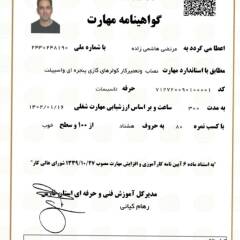 گواهینامه مهارت
اعطا می گردد به مرتضی هاشمی زاده با شماره ملی ۲۴۳۰۲۴۸۱۹۰
مطابق با استاندارد مهارت نصاب وتعمیرکار کولرهای گازی پنجره ای واسپیلت
کد ۷۱۲۷۲۰۰۹۰۱۰۰۰۱ حرفه تاسیسات
به مدت ۳۰۰ ساعت و بر اساس ارزشیابی مهارت شغلی ۱۴۰۲/۰۱/۱۶
با کسب نمره ۸۰ به حروف هشتاد از ۱۰۰ و سطح خوب
به استناد ماده ۶ آیین نامه کارآموزی و افزایش مهارت مصوب ۱۳۴۹/۱۰/۲۷ شورای عالی کار
مدیرکل آموزش فنی و حرفه ای استان فارس
رهام کیانی